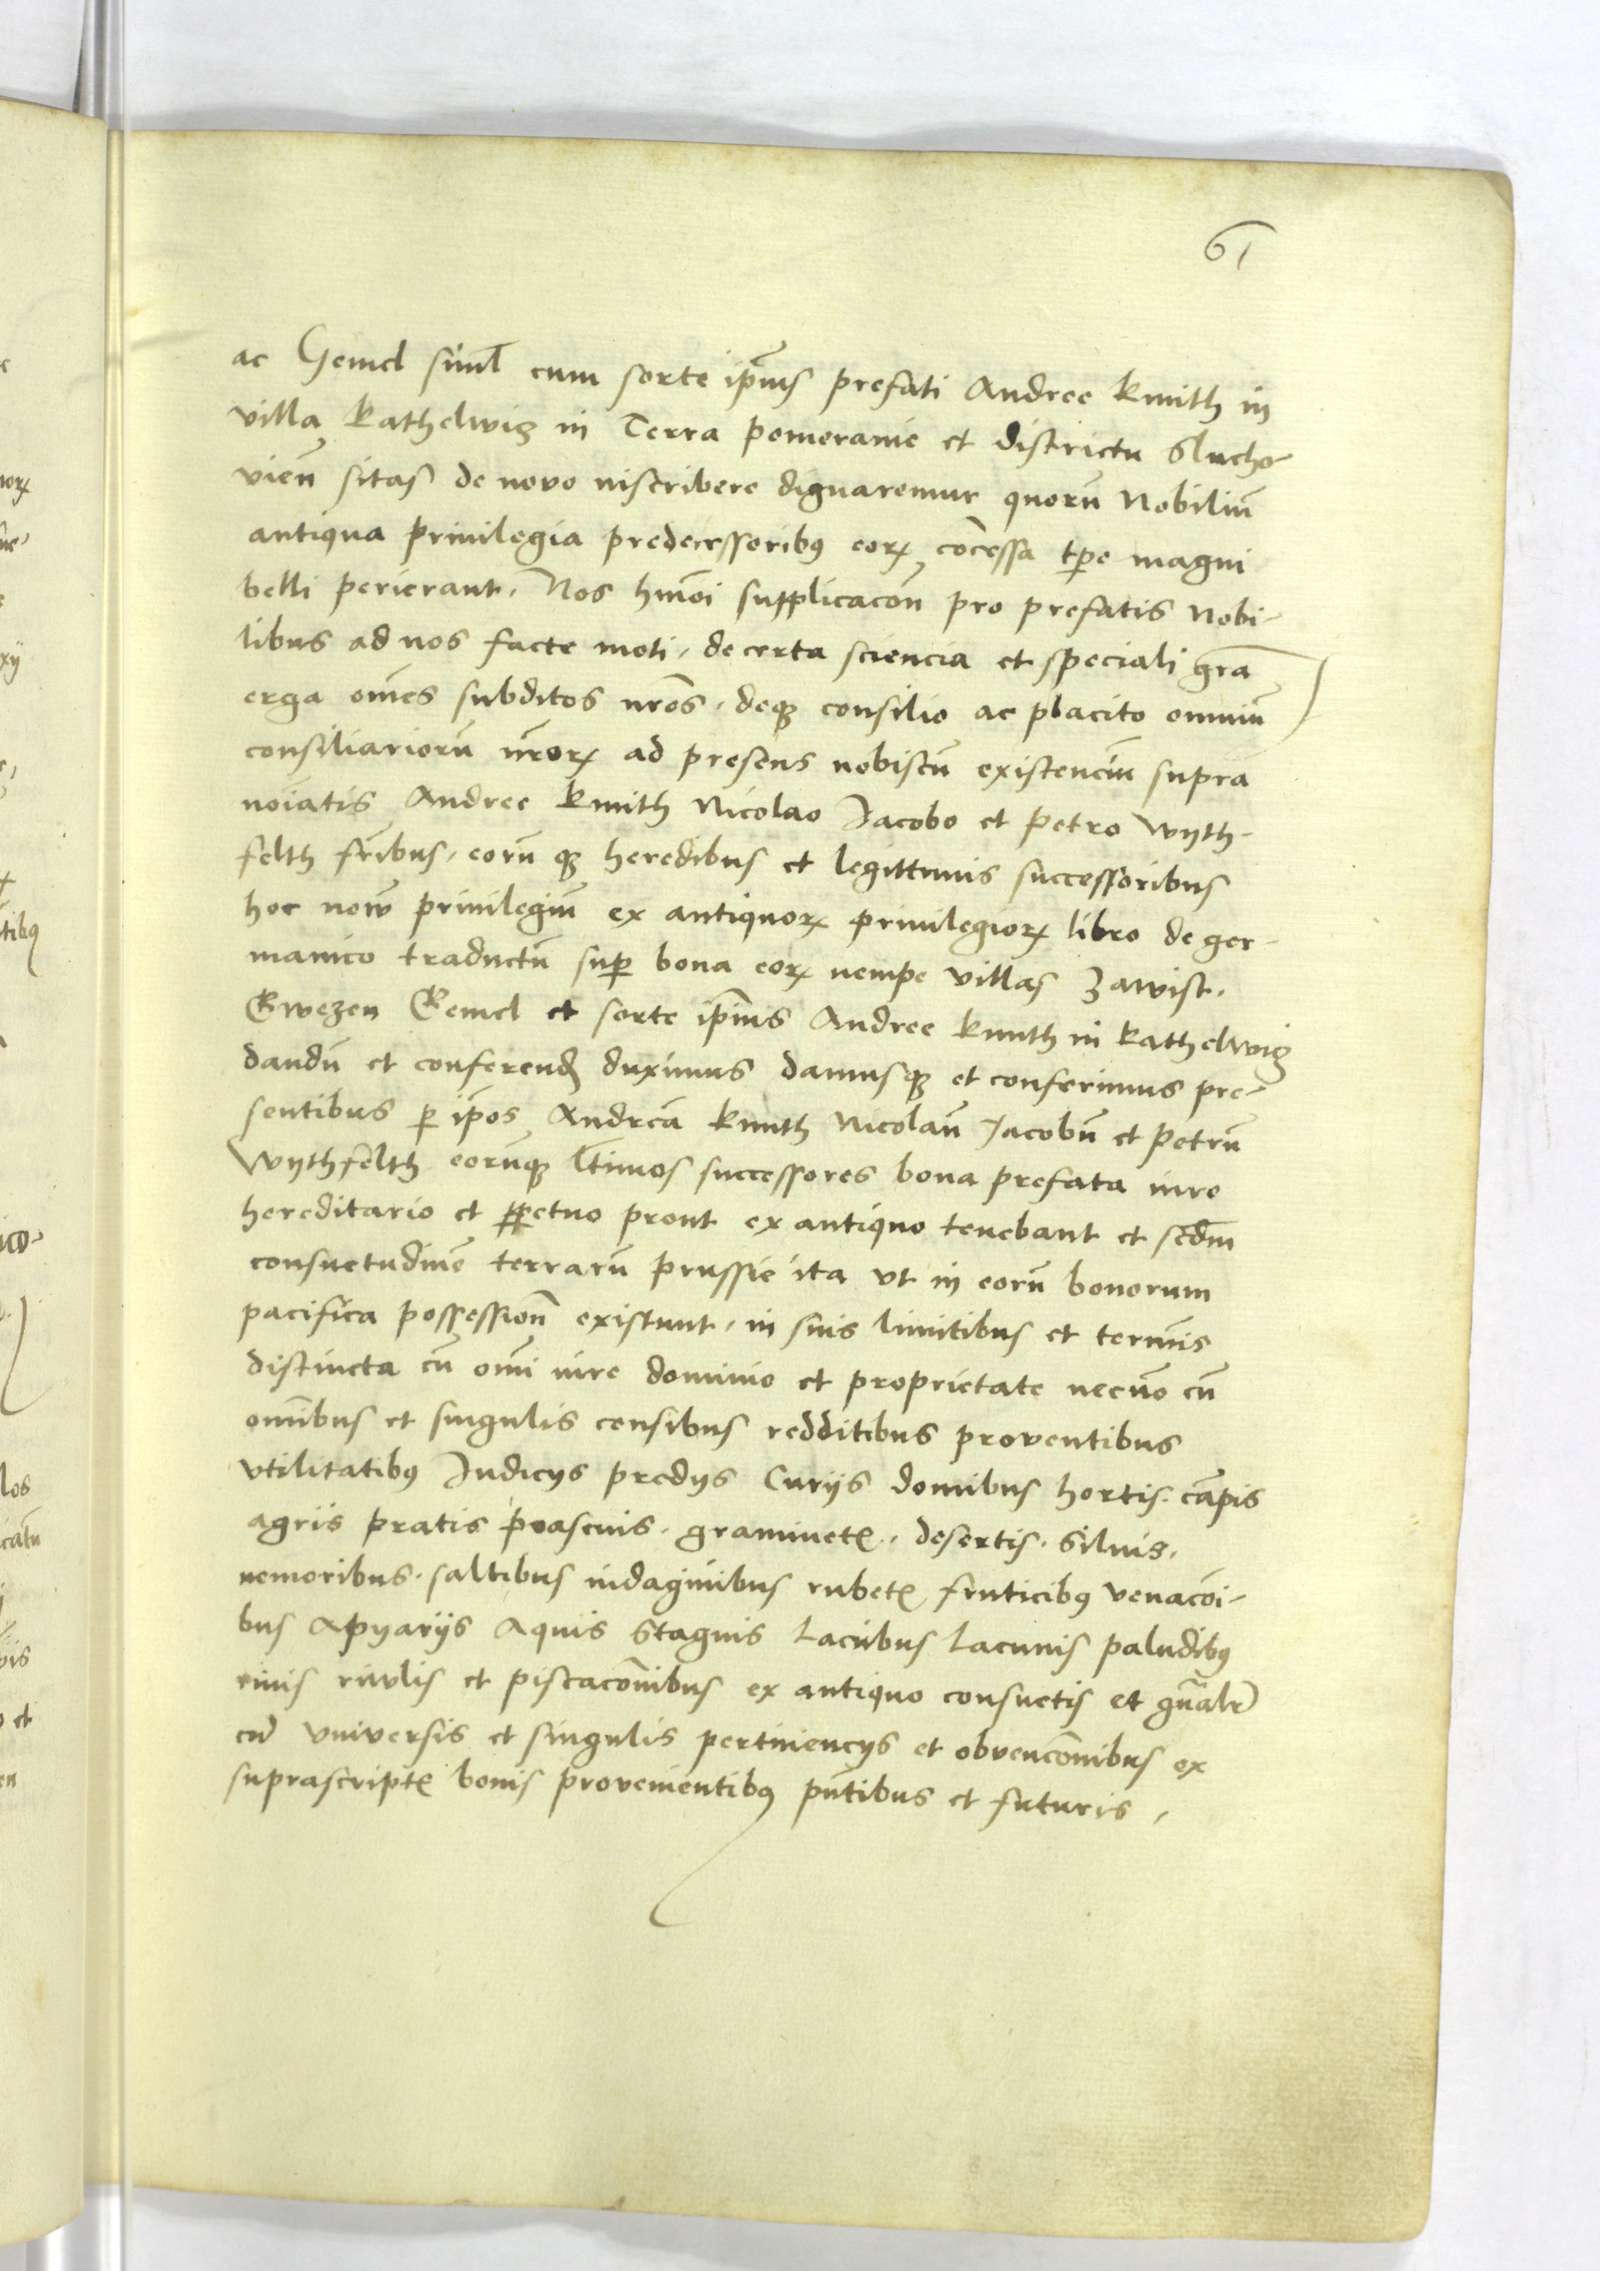 61
ac Gemel siml̄ cum sorte ip̄ius prefati Andree kmith in
villa kathelwiz in Terra pomeranie et districtu Slucho-
vieñ sitas de novo inscribere dignaremur quorū Nobiliū
antiqua privilegia predecessoribꝯ eoꝝ cōcessa tp̄e magni
belli perierant. Nos hm̄oi supplicacōn̄ pro prefatis Nobi-
libus ad nos facte moti, de certa sciencia et speciali gr̄a
erga om̄es subditos nr̄os, deqꝫ consilio ac placito omniū
consiliariorū nr̄oꝝ ad presens nobiscū existenciū supra
noīatis Andree kmith Nicolao Jacobo et petro wyth-
felth fr̄ibus, eorū qꝫ heredibus et legittimis successoribus
hoc novū privilegiū ex antiquoꝝ privilegioꝝ libro de ger-
manico traductū suꝑ bona eoꝝ nempe villas Zawist.
Gwezen Gemel et sorte ip̄ius Andree kmith in kathelwiz
dandū et conferend̄ duximus damusqꝫ et conferimus pre-
sentibus ꝑ ip̄os Andreā kmith Nicolaū Jacobū et petrū
wythfelth eorūqꝫ l̄timos successores bona prefata iure
hereditario et ꝑpetuo prout ex antiquo tenebant et scd̄m
consuetudinē terrarū prussie ita vt in eorū bonorum
pacifica possession̄ existunt, in suis limitibus et termīs
distincta cū om̄i iure dominio et proprietate necnō cū
om̄ibus et singulis censibus redditibus proventibus
vtilitatibꝯ Judicijs predijs Curijs domibus hortis. cāpis
agris pratis pascuis. graminetꝭ. desertis. Siluis.
nemoribus. saltibus indaginibus rubetꝭ fruticibꝯ venacōi-
bus Apyarijs Aquis Stagnis Lacubus Lacunis paludibꝯ
rivis rivulis et piscacōnibus ex antiquo consuetis et gn̄alr̄
cū vniversis et singulis pertinencijs et obvencōnibus ex
suprascriptꝭ bonis provenientibꝯ pn̄tibus et futuris,